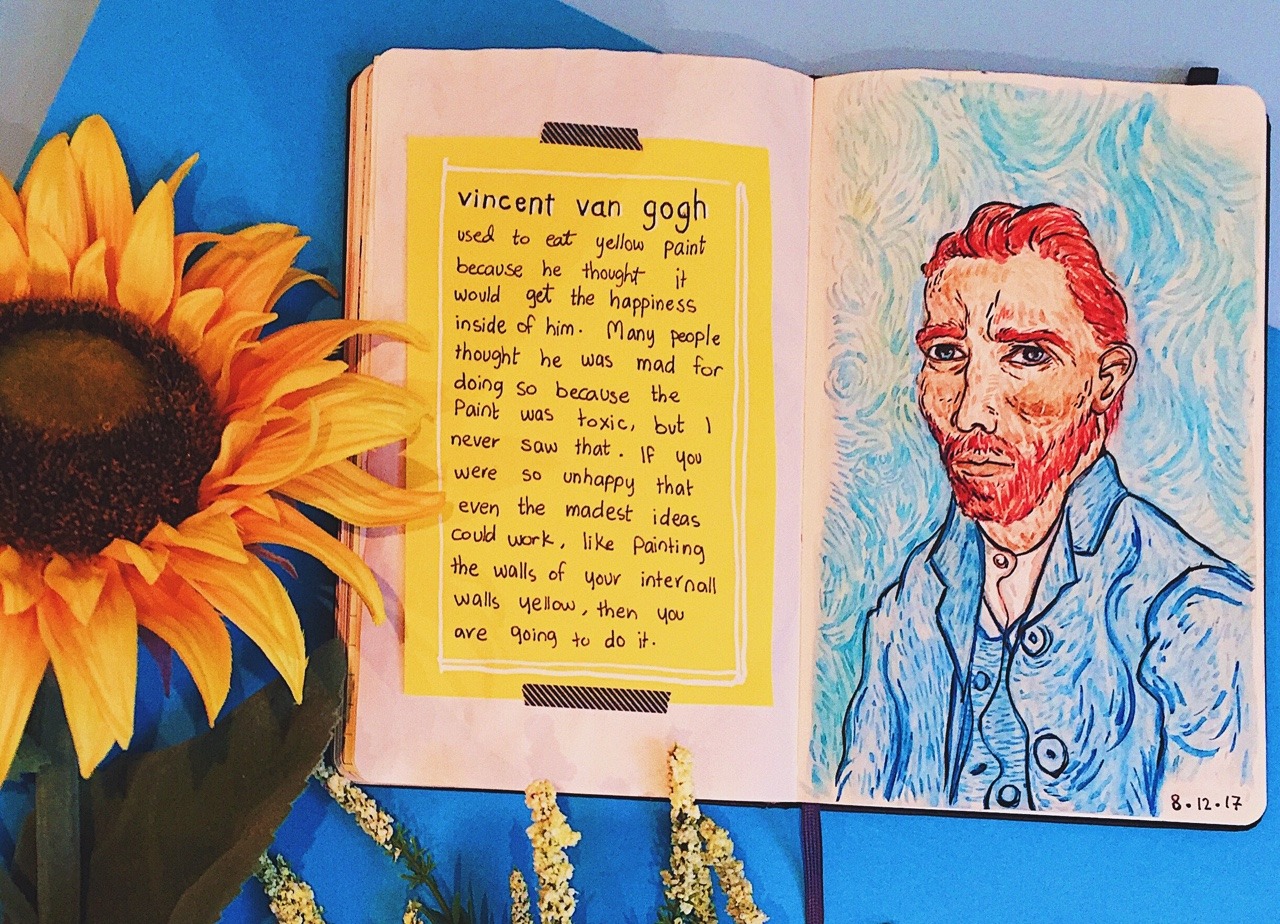 vincent van gogh
used to eat yellow paint
because he thought it
would get the happiness
inside of him. Many people
thought he was mad for
doing so because the
Paint was toxic, but I
never saw that. If you
were so unhappy that
even the madest ideas
could work, like Painting
the walls of your internall
walls yellow, then you
are going to do it.
8.12.17